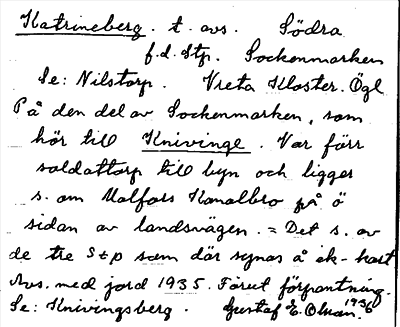 Katrineberg. t. avs. Södra
f.d. Stp. Sockenmarken
Se: Nilstorp. Vreta Kloster. Ögl
På den del av Sockenmarken, som
hör till Knivinge. Var förr
soldattorp till byn och ligger
s. om Malfors Kanalbro på ö
sidan av landsvägen. = Det s. av
de tre Stp som där synas å ek-kart
Avs. med jord 1935. Förut förpantning.
Se: Knivingsberg. Gustaf E. Olsson. 1936